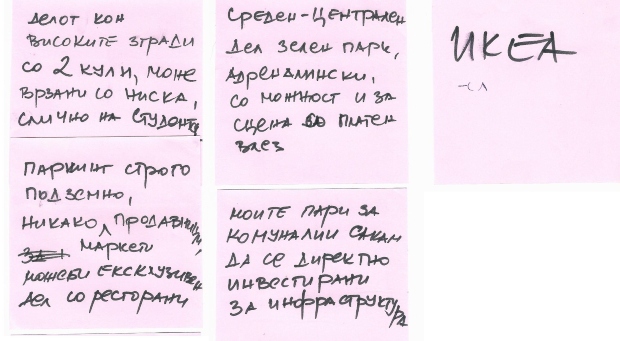 ДЕЛОТ КОН
ВИСОКИТЕ ЗГРАДИ
СО 2 КУЛИ, МОЖЕ
ВРЗАНИ СО НИСКА,
СЛИЧНО НА СТУДЕНТИ
ПАРКИНГ СТРОГО
ПОДЗЕМНО,
НИКАКО ПРОДАВНИЦИ,
МАРКЕТИ
МОЖЕБИ ЕКСКЛУЗИВЕН
ДЕЛ СО РЕСТОРАНИ
СРЕДЕН-ЦЕНТРАЛЕН
ДЕЛ ЗЕЛЕН ПАРК,
АДРЕНАЛИНСКИ,
СО МОЖНОСТ И ЗА
СЦЕНА СО ПЛАТЕН
ВЛЕЗ
МОИТЕ ПАРИ ЗА
КОМУНАЛИИ САКАМ
ДА СЕ ДИРЕКТНО
ИНВЕСТИРАНИ
ЗА ИНФРАСТРУКТУРА
ИКЕА